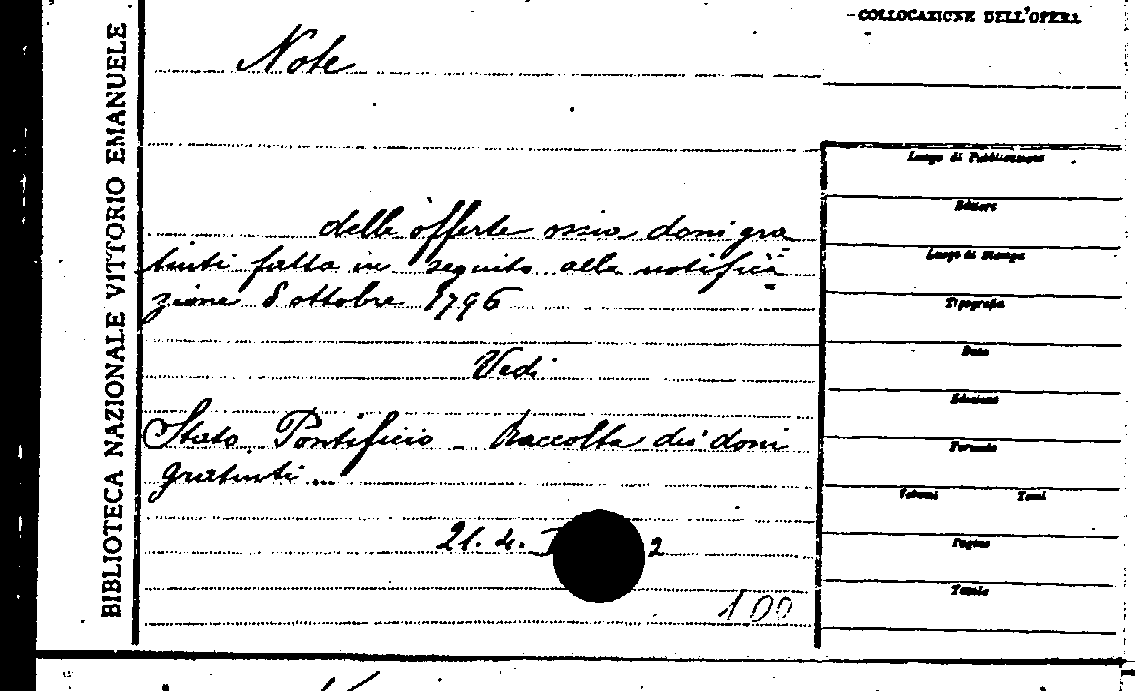 BIBLIOTECA NAZIONALE VITTORIO EMANUELE
COLLOCAZIONE DELL'OPERA
Note
delle offerte ossia doni gra
tuiti fatta in seguito alla notifica
zione 8 ottobre 1796
Vedi
Stato Pontificio - Raccolta di doni
gratuiti...
21. 4. 2
100
Luogo di Pubblicazione
Editore
Luogo di Stampa
Tipografia
Data
Edizione
Formato
Volumi Tomi
Pagine
Tavole